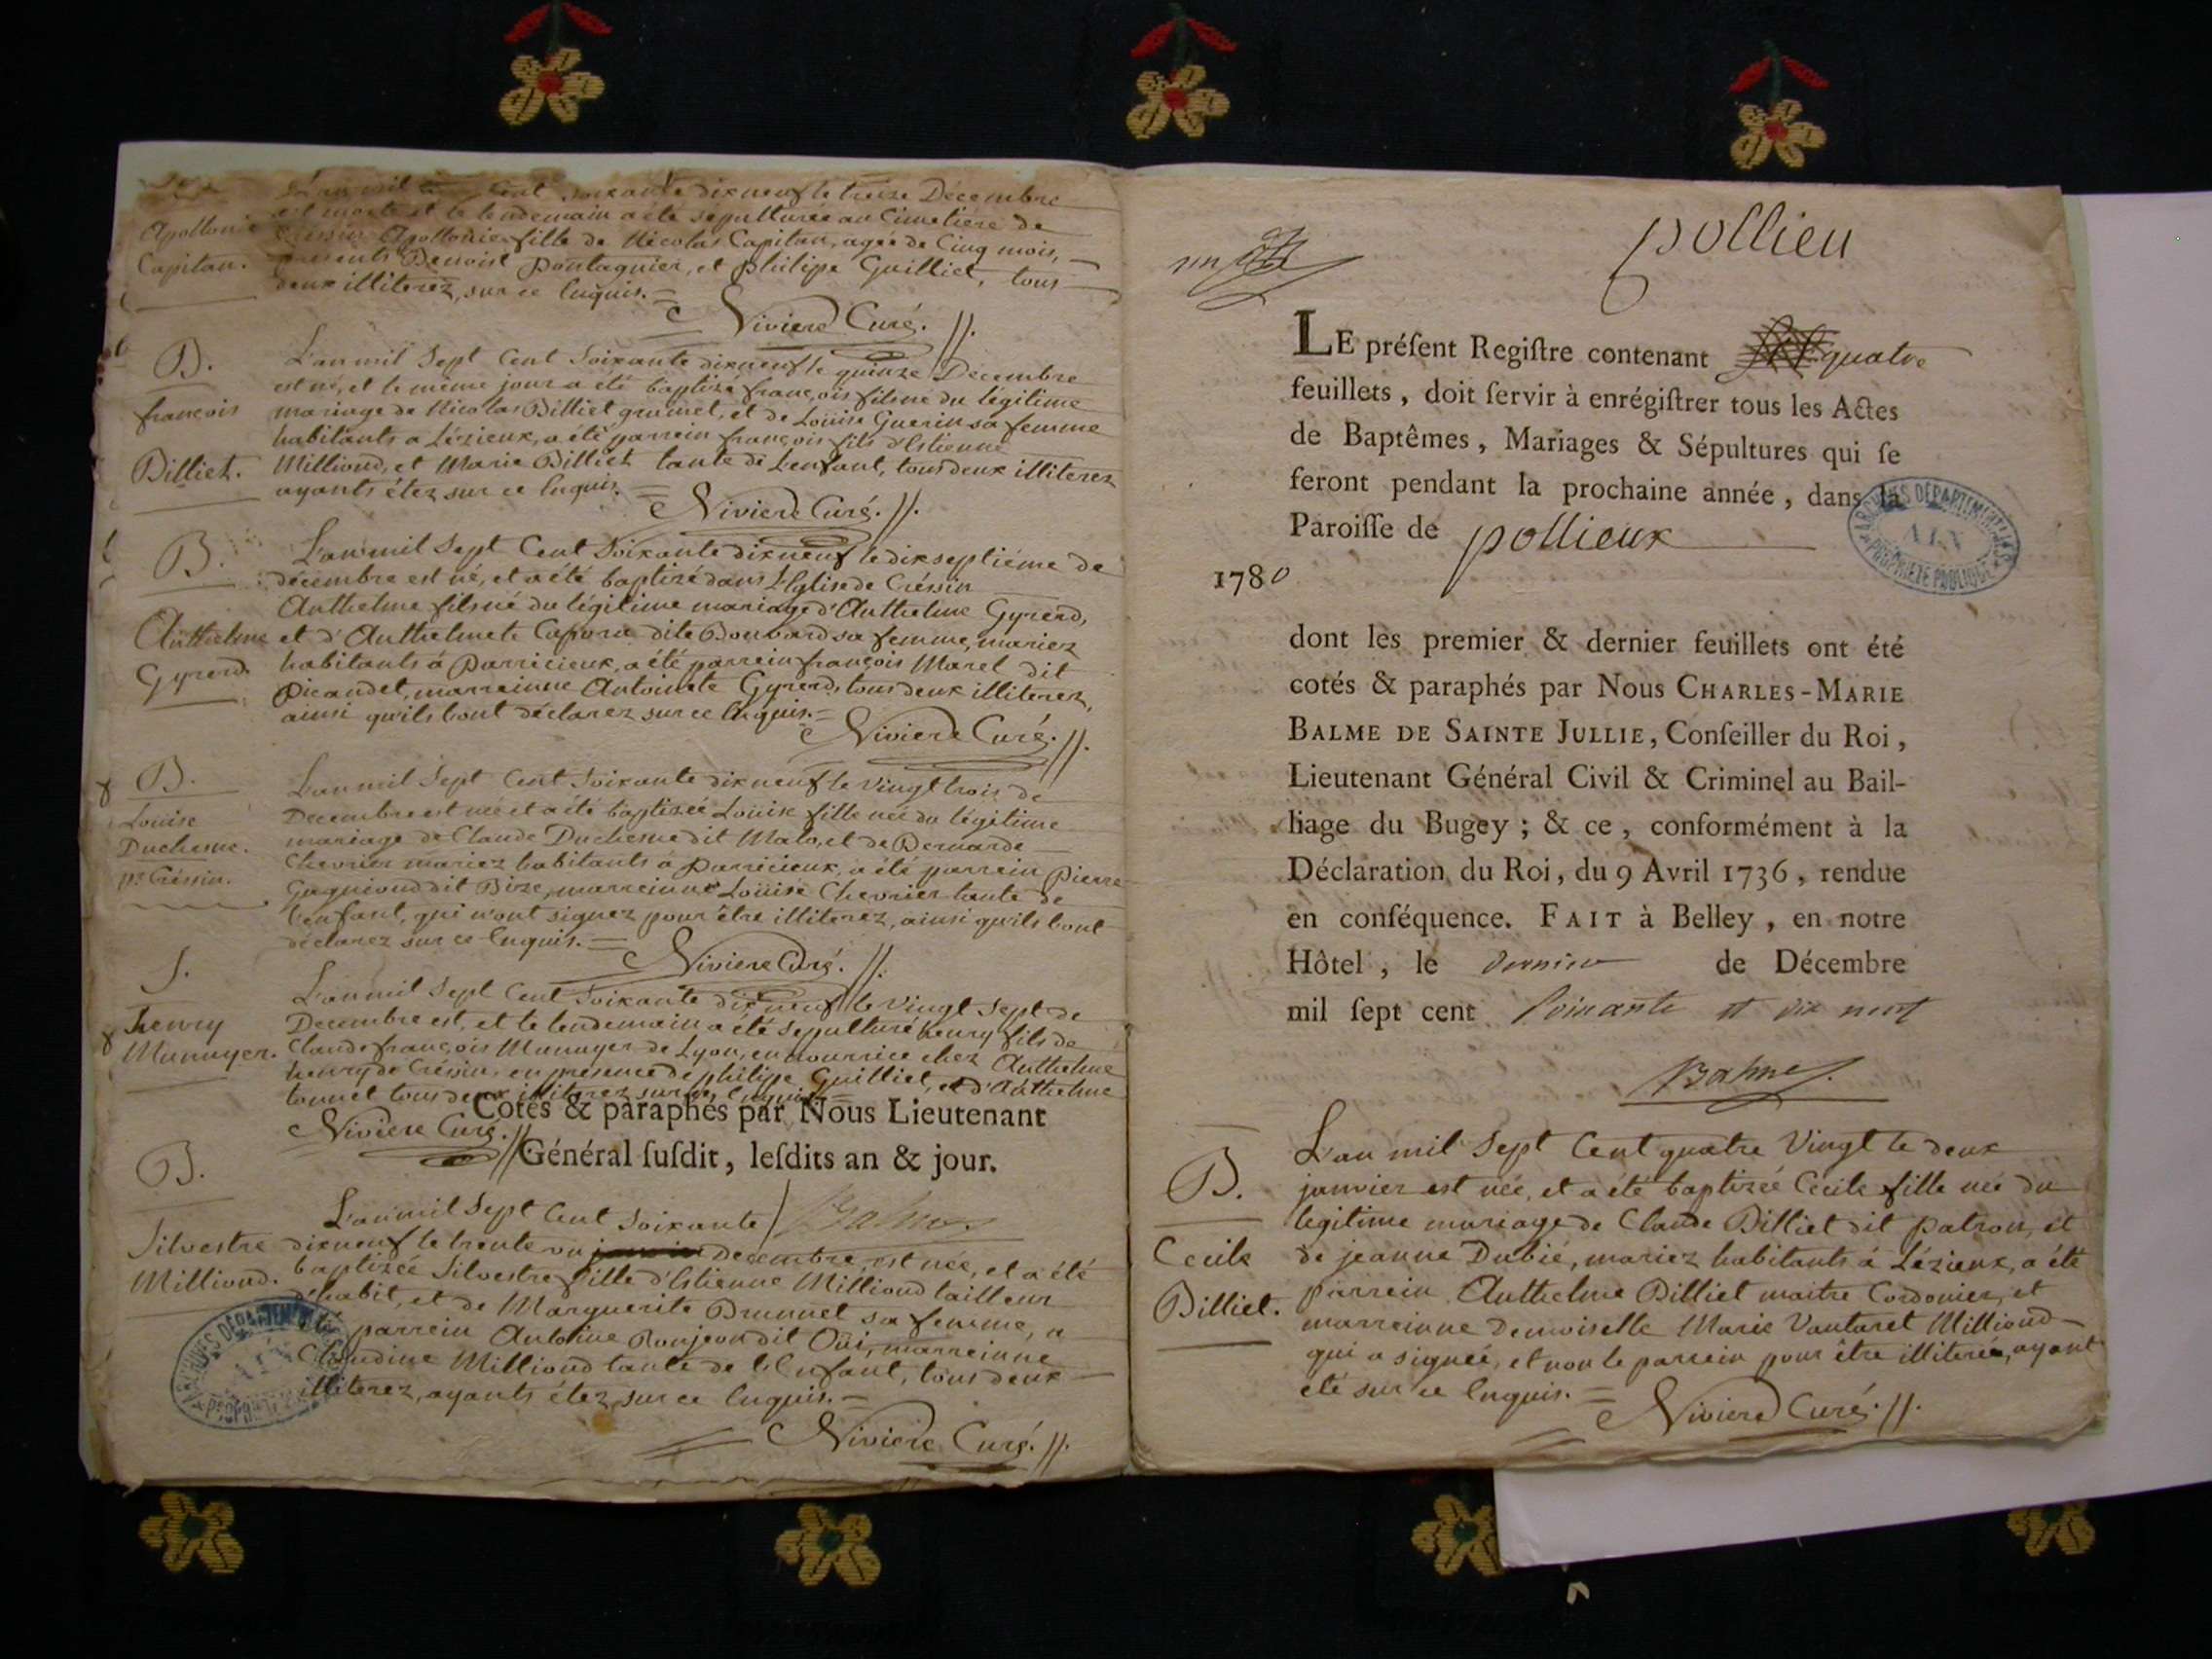 L'an mil sept Cent soixante dixneuf le treize Décembre
est morte et le lendemain a été sépulturée au Cimetiere de
Apollonie
Créssin Apollonie fille de Nicolas Capitan, agée de Cinq mois,
Capitan.
presents Benoist pontagnier, et philipe Guilliet, tous
deux illiterez, sur ce Enquis.=
Niviere Curé.
B.
L'an mil Sept Cent Soixante dixneuf le quinze Décembre
est né, et le même jour a été baptizé françois fils né du légitime
françois
mariage de Nicolas Billiet grumet, et de Louise Guerin sa femme
habitants a Lézieux, a été parrein françois fils d'Estienne
Billiet.
Milliond, et Marie Billiet tante de L'enfant, tous deux illiterez
ayants étez sur ce Enquis.=
Niviere Curé.
B.
L'an mil Sept Cent Soixante dixneuf le dix septiéme de
décembre est né, et a été baptizé dans L'Eglise de Créssin
Anthelme fils né du légitime mariage d'Anthelme Gyrerd,
Anthelme
et d'Anthelmete dite Bombard sa femme, mariez
Gyrerd.
habitants á parricieux, a été parrein françois Maret dit
Picaudet, marreinne Antoinete Gyrerd, tous deux illiterez,
ainsi qu'ils l'ont déclarez sur ce Enquis.=
Niviere Curé.
B.
L'an mil Sept Cent Soixante dix neuf le Vingt trois de
Louise
Decembre est née et a été baptizée Loüise fille née du légitime
Duchesne.
mariage de Claude Duchesne dit Malo, et de Bernarde
pr Créssin.
Chevrier mariez habitants á parricieux, a été parrein Pierre
Gagniond dit Bize, marreinne Loüise Chevrier tante de
l'enfant, qui n'ont signez pour être illiterez, ainsi qu'ils l'ont
déclarez sur ce Enquis.=
Niviere Curé.
S.
L'an mil Sept Cent Soixante dix neuf le Vingt Sept de
henry
Decembre est, et le lendemain a été sépulturé henry fils de
Munuyer.
Claude françois Munuyer de Lyon, en nourrice chez Anthelme
henry de Créssin, en présence de philipe Guilliet, et d'Anthelme
tonnet tous deux illiterez sur ce Enquis=
Cotés & paraphés par Nous Lieutenant
Niviere Curé.
Général susdit, lesdits an & jour.
B.
L'an mil Sept Cent Soixante
Balme
Silvestre
dixneuf le trente un Decembre, est née, et a été
Milliond.
baptizée Silvestre fille d'Estienne Milliond tailleur
d'habit, et de Marguerite Brunnet sa femme, a
été parrein Antoine Bonjeon dit Oüi, marreinne
Claudine Milliond tante de l'Enfant, tous deux
illiterez, ayants étez sur ce Enquis.=
Niviere Curé.
ARCHIVES DEPARTEMENTALES
AIN
PROPRIETE PUBLIQUE
pollieu
LE présent Registre contenant quatre
feuillets, doit servir à enrégistrer tous les Actes
de Baptêmes, Mariages & Sépultures qui se
feront pendant la prochaine année, dans la
Paroisse de pollieux
ARCHIVES DEPARTEMENTALES
AIN
PROPRIETE PUBLIQUE
1780
dont les premier & dernier feuillets ont été
cotés & paraphés par Nous CHARLES-MARIE
BALME DE SAINTE JULLIE, Conseiller du Roi,
Lieutenant Général Civil & Criminel au Bail-
liage du Bugey; & ce, conformément à la
Déclaration du Roi, du 9 Avril 1736, rendue
en conséquence. FAIT à Belley, en notre
Hôtel, le dernier de Décembre
mil sept cent soixante et dix neuf
Balme.
L'an mil Sept Cent quatre Vingt le deux
B.
janvier est née, et a été baptizée Cécile fille née du
legitime mariage de Claude Billiet dit patron, et
Cecile
de jeanne Dubié, mariez habitants á Lézieux, a été
Billiet.
parrein Anthelme Billiet maitre Cordonier, et
marreinne Demoiselle Marie Vantaret Milliond
qui a signée, et non le parrein pour être illiteré, ayant
été sur ce Enquis.=
Niviere Curé.